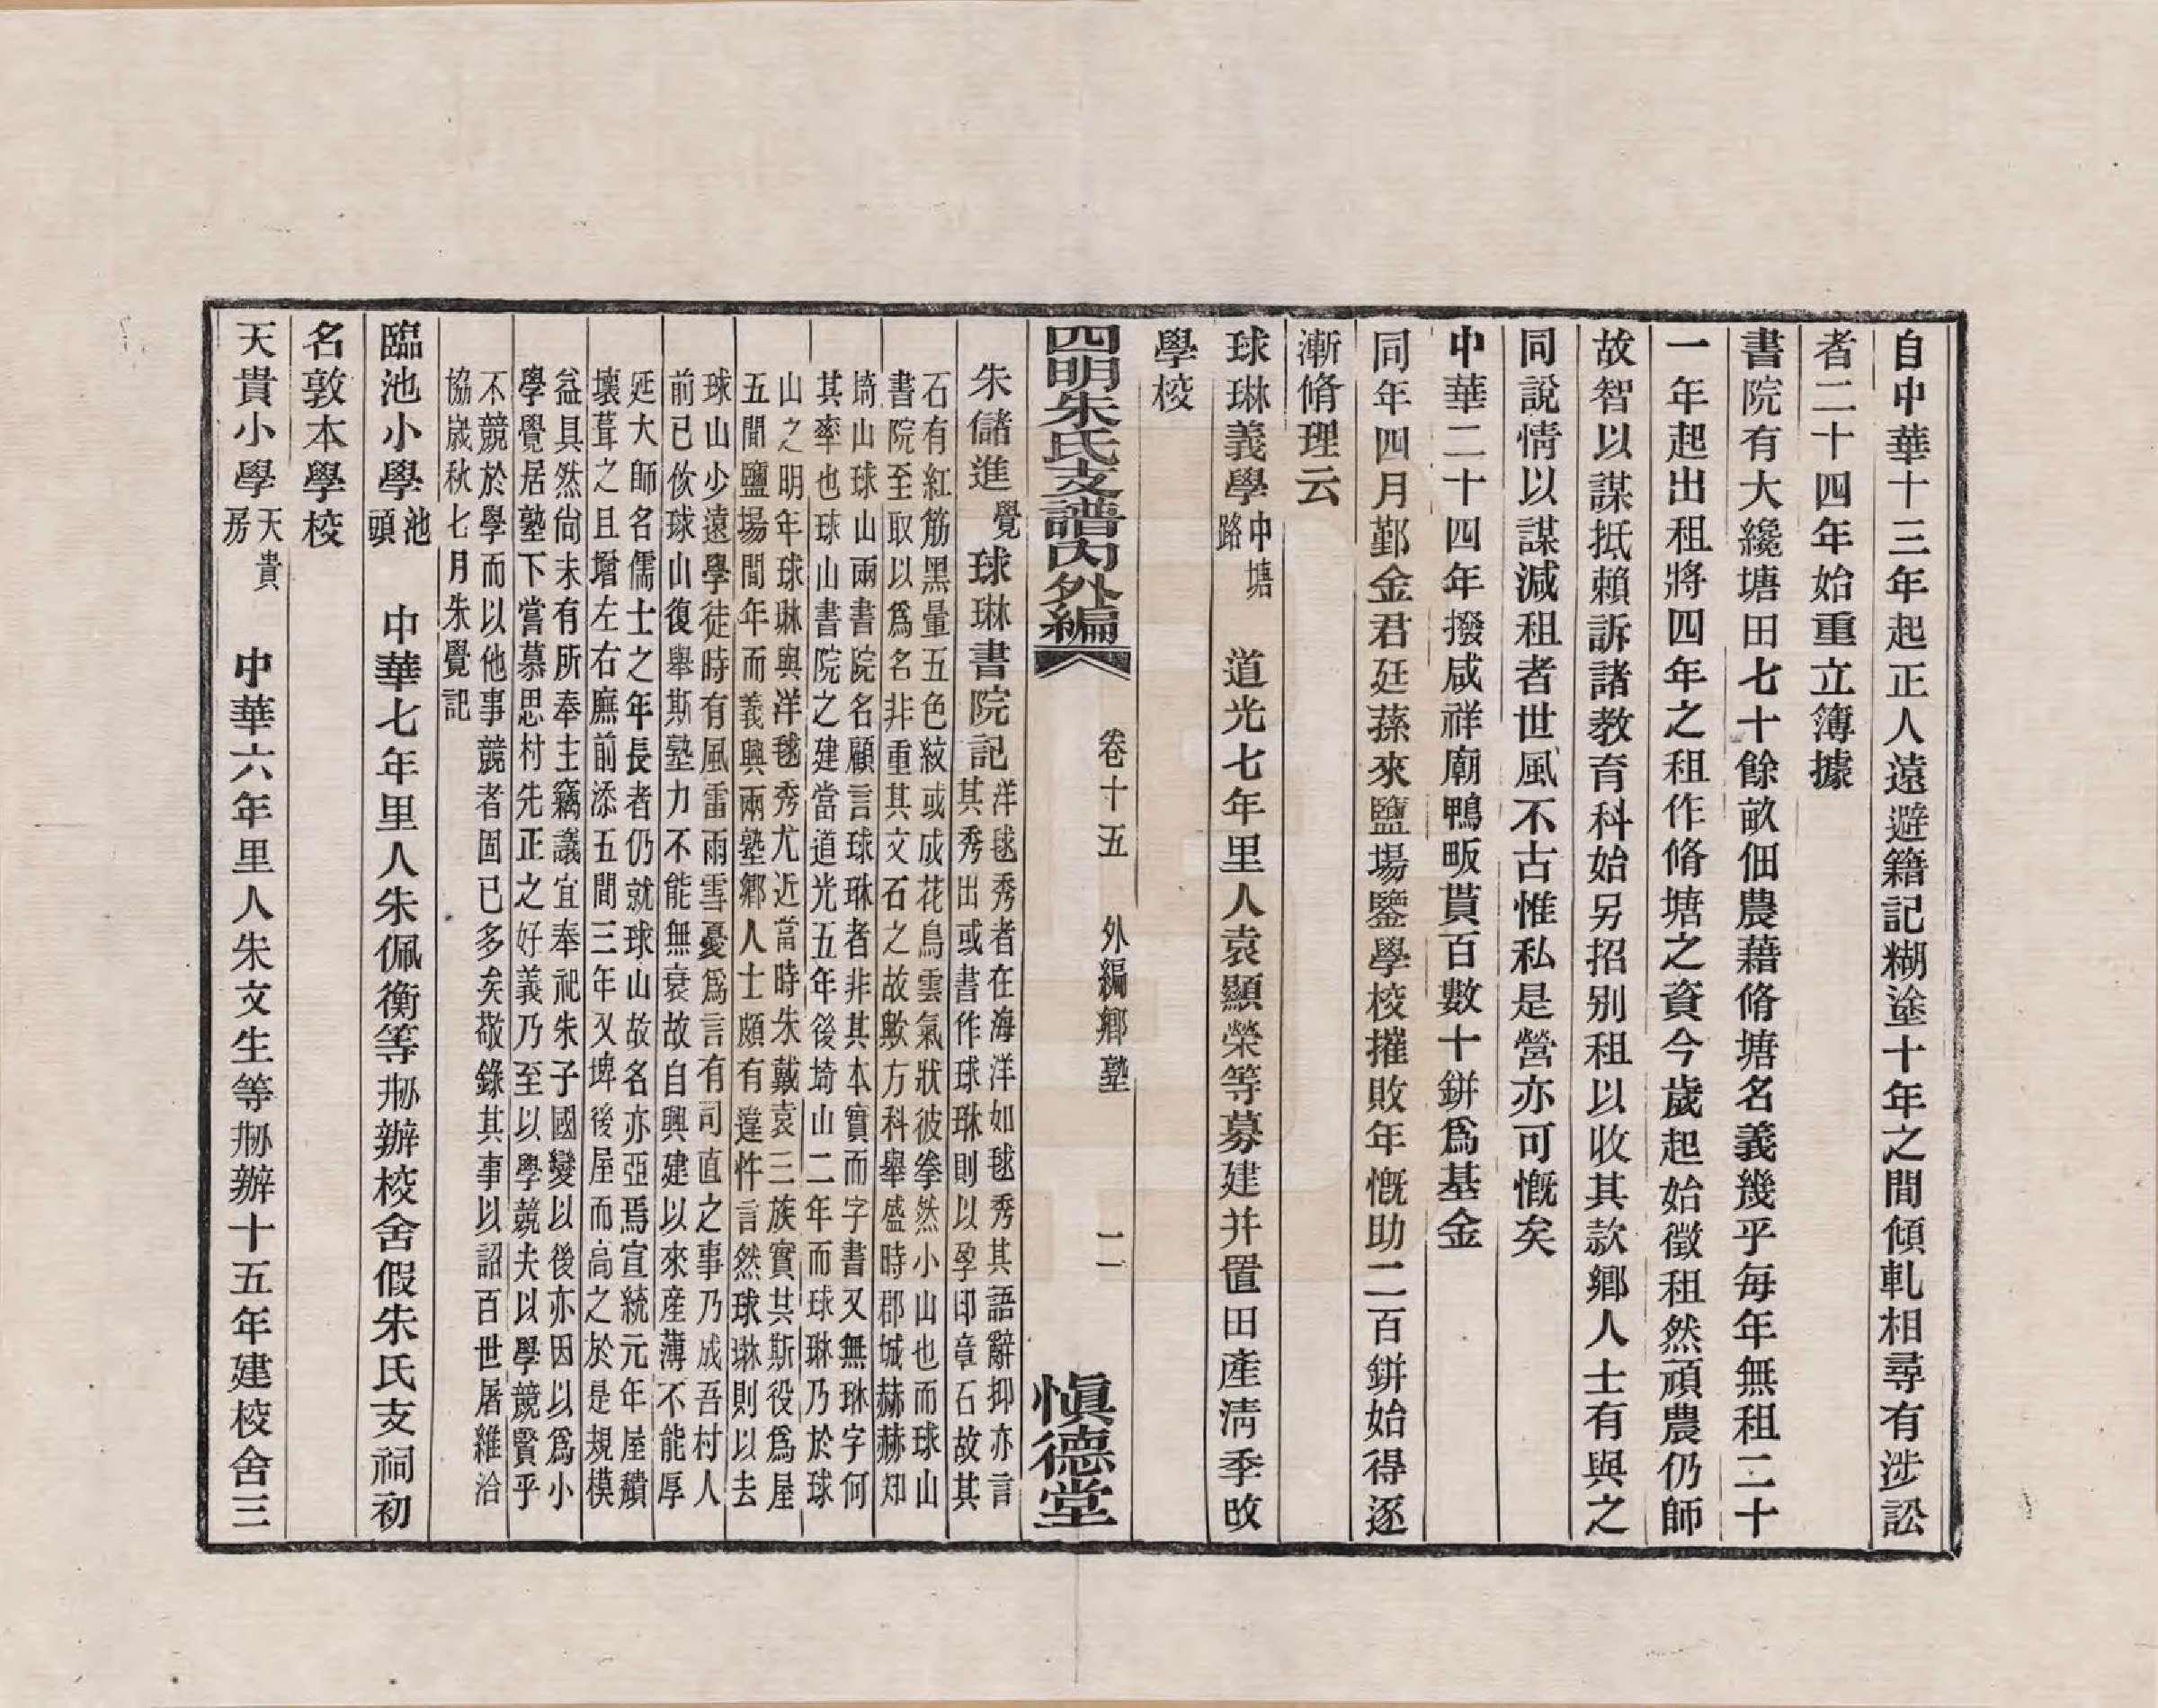 自中華十三年起正人遠避籍記糊塗十年之間傾軋相尋有涉訟
者二十四年始重立簿據
書院有大纔塘田七十餘畝佃農藉脩塘名義幾乎每年無租二十
一年起出租將四年之租作脩塘之資今歲起始徵租然頑農仍師
故智以謀抵賴訴諸教育科始另招別租以收其款鄉人士有與之
同說情以謀減租者世風不古惟私是營亦可慨矣
中華二十四年撥咸祥廟鴨畈貰百數十鉼爲基金
同年四月鄞金君廷蓀來鹽場鑒學校摧敗年慨助二百鉼始得逐
漸脩理云
球琳義學中塘路　道光七年里人袁顯榮等募建并置田產淸季改
學校
四明朱氏支譜內外編　卷十五　外編鄉塾　二　愼德堂
朱儲進覺球琳書院記洋毬秀者在海洋如毬秀其語辭抑亦言
其秀出或書作球琳則以孕印章石故其
石有紅筋黑暈五色紋或成花鳥雲氣狀彼拳然小山也而球山
書院至取以爲名非重其文石之故歟方科舉盛時郡城赫赫知
埼山球山兩書院名顧言球琳者非其本實而字書又無琳字何
其率也球山書院之建當道光五年後埼山二年而球琳乃於球
山之明年球琳與洋毬秀尤近當時朱戴袁三族實其斯役爲屋
五間鹽場間年而義興兩塾鄉人士頗有違忤言然球琳則以去
球山少遠學徒時有風雷雨雪憂爲言有司直之事乃成吾村人
前已佽球山復舉斯塾力不能無衰故自興建以來産薄不能厚
延大師名儒士之年長者仍就球山故名亦亞焉宣統元年屋穨
壞葺之且增左右廡前添五間三年又埤後屋而高之於是規模
益具然尙未有所奉主竊議宜奉祀朱子國變以後亦因以爲小
學覺居塾下嘗慕思村先正之好義乃至以學競夫以學競賢乎
不競於學而以他事競者固已多矣敬錄其事以詔百世屠維洽
協歲秋七月朱覺記
臨池小學池頭　中華七年里人朱佩衡等刱辦校舍假朱氏支祠初
名敦本學校
天貴小學天貴房　中華六年里人朱文生等刱辦十五年建校舍三